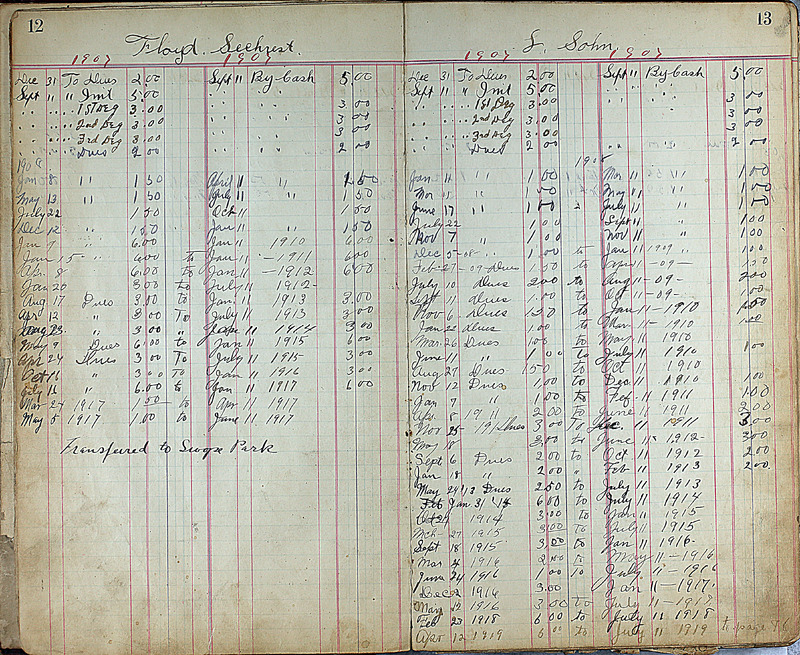 12
Floyd. Sechrist.
1907 1907
Dec 31 To Dues 2.00 Sept 11 By Cash 5.00
Sept 11 " Imt 5.00
" " " 1st Deg 3.00 " " " 3 00
" " " 2nd Deg 3.00 " " " 3 00
" " " 3rd Deg 3.00 " " " 3 00
" " " Dues 2.00 " " " 2 00
1908
Jan 8 " 1 50 April 11 " 1 50
May 13 " 1 50 July 11 " 1 50
July 22 1 50 Oct 11 1 50
Dec 12 " 1 50 Jan 11 " 1 50
Jan 7 " 6.00 Jan 11 1910 6 00
Jan 15 " 6.00 to Jan 11 - 1911 6 00
Apr. 8 6.00 to Jan 11 - 1912 6 00
Jan 20 3.00 to July 11 1912
Aug 17 Dues 3.00 to Jan 11 1913 3.00
Apr 12 " 3.00 To July 11 1913 3.00
" 3.00 " 1914 3.00
May 9 Dues 6.00 to Jan 11 1915 6.00
Apr 24 Dues 3.00 To July 11 1915 3.00
Oct 11 " 3.00 To Jan 11 1916 3.00
" 6.00 to Jan 11 1917 6 00
Mar 27 1917 1.50 to Apr 11 1917
May 5 1917 1.00 to June 11 1917
Transfered to Swope Park
13
S. Sohn
1907 1907
Dec 31 To Dues 2 00 Sept 11 By Cash 5.00
Sept 11 " Imt 5.00
" " " 1st Deg 3.00 3 00
" " " 2nd Deg 3.00 3 00
" " " 3rd Deg 3.00 3 00
" " Dues 2.00 " " 2 00
1908
Jan 11 " 1 00 Mar 11 " 1 00
Mar 11 " 1 00 May 11 " 1 00
June 17 " 1 00 July 11 " 1 00
July 22 1 00 Sept 11 " 1 00
Nov 7 " 1 00 Nov 11 " 1 00
Dec 5-08- " 1.00 to Jan 11 1909 " 1 00
Feb-27-09 Dues 1.50 to Apr 11-09- 1 50
July 10 Dues 2.00 to Aug 11-09- 2 00
Sept 11 Dues 1.00 to Oct 11-09- 1.00
Nov 6 Dues 1.50 to Jan 11-1910 1.50
Jan 22 Dues 1.00 to Mar 11-1910 1.00
Mar 26 Dues 1.00 to May 11 1910
June 11 " 1.00 to July 11 1910 1 00
Aug 27 Dues 1.50 to Oct 11 1910
Nov 12 Dues 1.00 to Dec 11 1910 1.00
Jan 7 " 1.00 to Feb 11 1911 1.00
Apr. 8 1911 2.00 to June 11 1911 2.00
Nov 25 - 1911 Dues 3.00 To Dec. 11 1911 3.00
May 18 3.00 to June 11 1912- 3.00
Sept 6 Dues 2.00 to Oct 11 1912 2.00
Jan 18 " 2.00 " Feb 11 1913 2.00
May 24 '13 Dues 2.50 to July 11 1913
Jan 31/ '14 6.00 to July 11 1914
Oct 24 1914 3.00 to Jan 11 1915
Mch 27 1915 3.00 to July 11 1915
Sept 18 1915 3.00 to Jan 11 1916.
Mar 4 1916 2.00 to May 11 - 1916
June 24 1916 1.00 to July 11 - 1916
Dec 2 1916 3.00 Jan 11 - 1917.
May 12 1916 3.00 to July 11 - 1917
Feb 23 1918 6.00 to July 11 1918
Apr 12 1919 6.00 to July 11 1919 to page 96